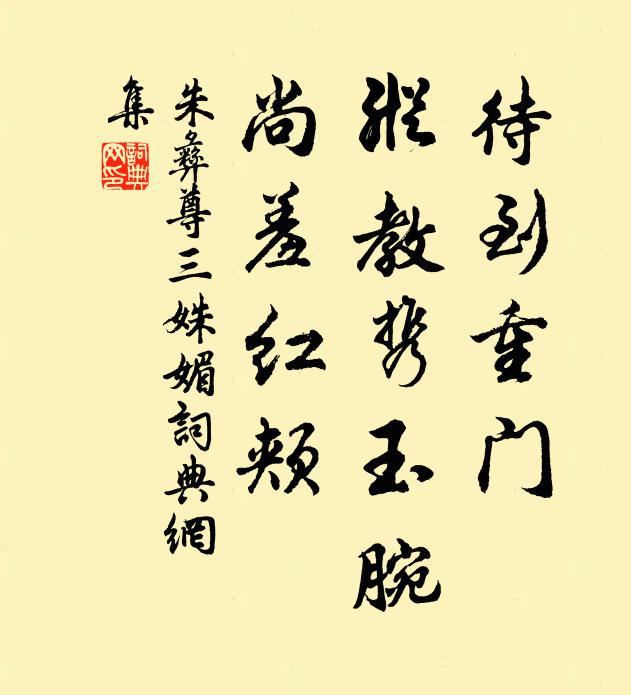 待到重门
纵教携玉腕
尚羞红颊
朱彝尊三姝媚詞典網
集
詞典
网印